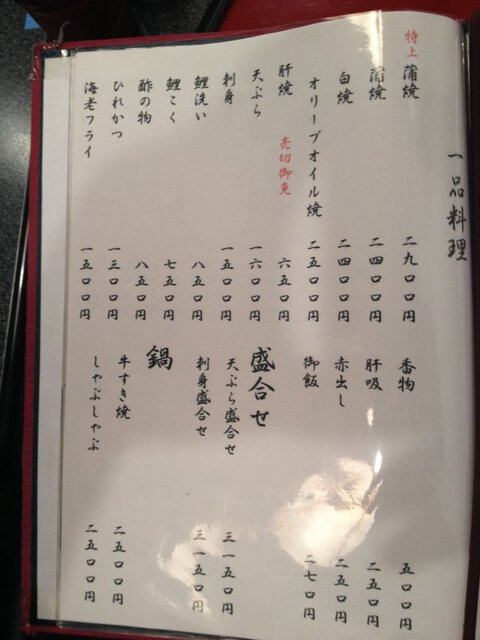 一品料理
特上 蒲焼 二九〇〇円
蒲焼 二四〇〇円
白焼 二四〇〇円
オリーブオイル焼 二五〇〇円
肝焼 売切御免 六五〇円
天ぷら 一六〇〇円
刺身 一五〇〇円
鯉洗い 八五〇円
鯉こく 七五〇円
酢の物 八五〇円
ひれかつ 一三〇〇円
海老フライ 一五〇〇円
香物 五〇〇円
肝吸 二五〇円
赤出し 二五〇円
御飯 二七〇円
盛合せ
天ぷら盛合せ 三一五〇円
刺身盛合せ 三一五〇円
鍋
牛すき焼 二五〇〇円
しゃぶしゃぶ 二五〇〇円